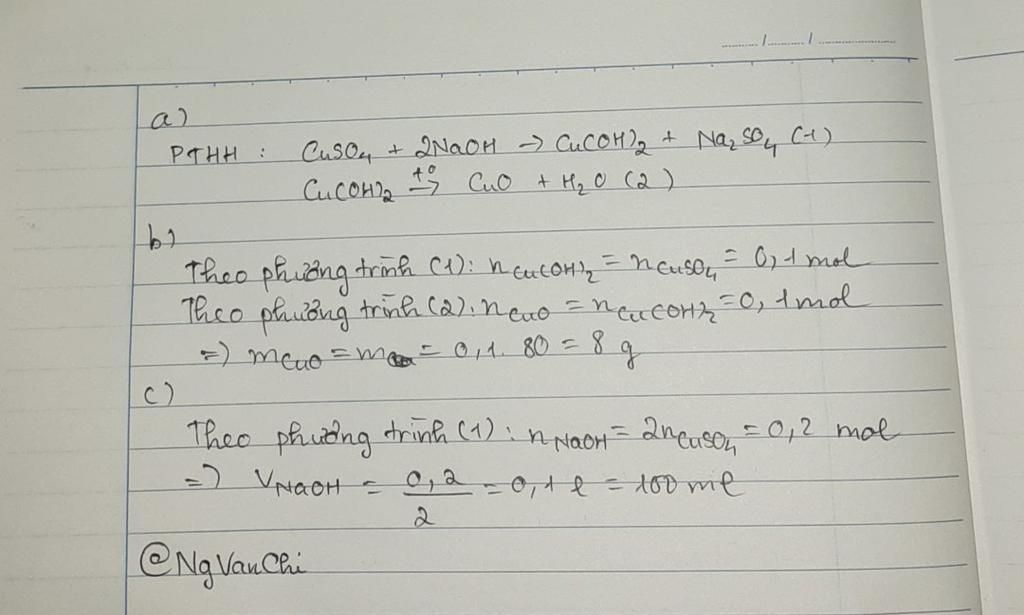 a)
PTHH : CuSO₄ + 2NaOH → Cu(OH)₂ + Na₂SO₄ (1)
Cu(OH)₂ t°→ CuO + H₂O (2)
b)
Theo phương trình (1): n Cu(OH)₂ = n CuSO₄ = 0,1 mol
Theo phương trình (2): n CuO = n Cu(OH)₂ = 0,1 mol
=) m CuO = m = 0,1. 80 = 8 g
c)
Theo phương trình (1) : n NaOH = 2n CuSO₄ = 0,2 mol
=) V NaOH = 0,2/2 = 0,1 l = 100 ml
@NgVanChi